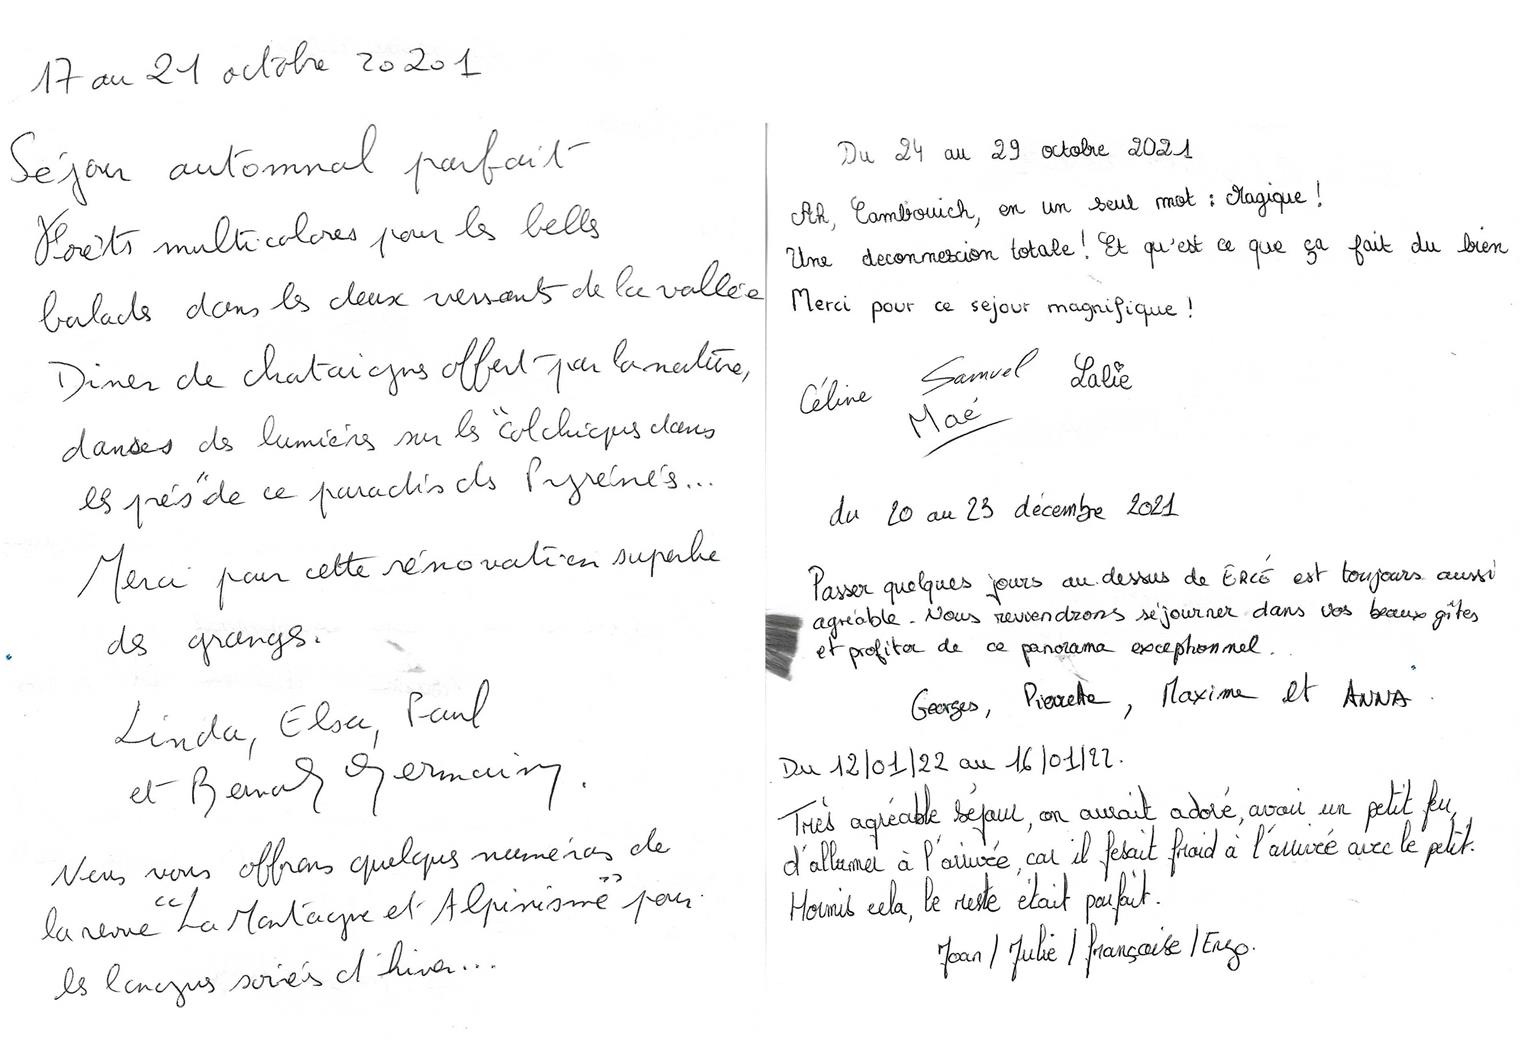 17 au 21 octobre 20201
Séjour automnal parfait
Forêts multicolores pour les belles
balades dans les deux versants de la vallée
Diner de chataignes offert par la nature,
danses des lumières sur les "colchiques dans
les prés" de ce paradis des Pyrénées...
Merci pour cette rénovation superbe
des granges.
Linda, Elsa, Paul
et Bernard Germain.
Nous vous offrons quelques numéros de
la revue "La Montagne et Alpinisme" pour
les longues soirées d'hiver...
Du 24 au 29 octobre 2021
Ah, Cambouich, en un seul mot : Magique !
Une deconnexion totale ! Et qu'est ce que ça fait du bien
Merci pour ce sejour magnifique !
Céline Samuel Lalie
Maé
du 20 au 23 décembre 2021
Passer quelques jours au dessus de ERCÉ est toujours aussi
agréable. Nous reviendrons séjourner dans vos beaux gîtes
et profiter de ce panorama exceptionnel.
Georges, Pierrette, Maxime et ANNA.
Du 12/01/22 au 16/01/22.
Très agréable séjour, on aurait adoré, avoir un petit feu,
d'allumer à l'arrivée, car il fesait froid à l'arrivée avec le petit.
Hormis cela, le reste était parfait.
Joan / Julie / Françoise / Enzo.